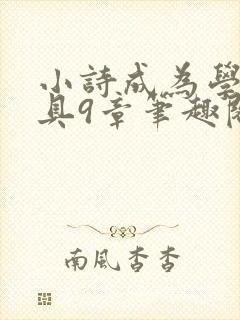 小詩成為學
具9章筆趣閣
南風杳杳